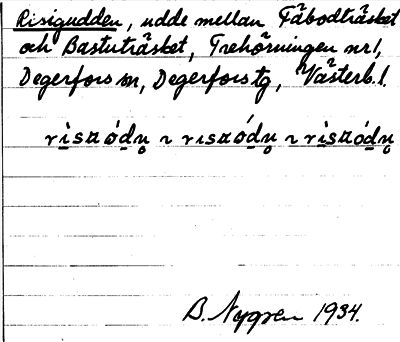 Risigudden, udde mellan Fäbodträsket
och Bastuträsket, Trehörningen nr 1,
Degerfors sn, Degerfors tg, Västerb. l.
B. Nygren 1934.